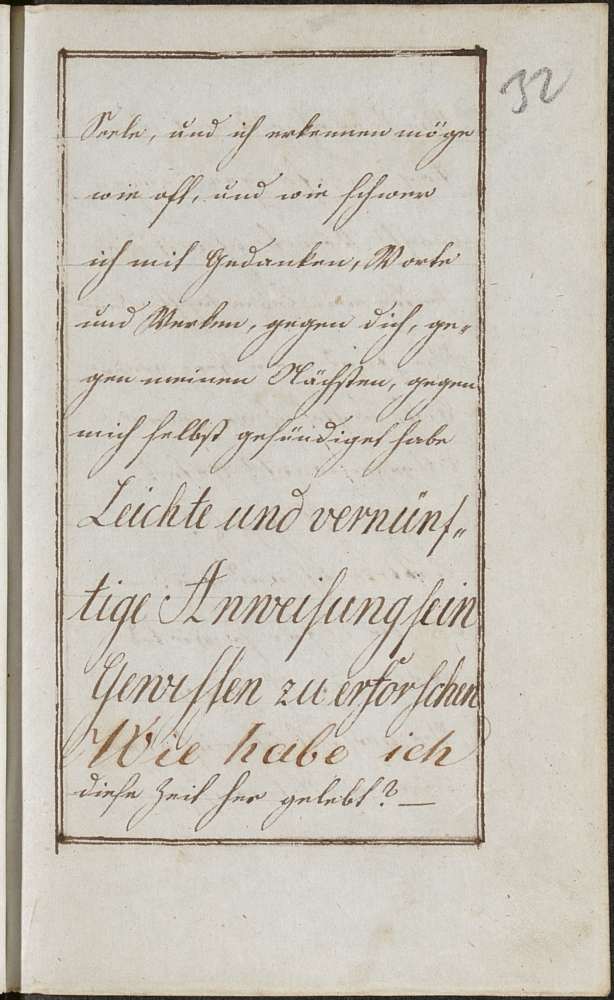 32
Seele, und ich erkennen möge
wie oft, und wie schwer
ich mit Gedanken, Worte
und Werken, gegen dich, ge„
gen meinen Nächsten, gegen
mich selbst gesündiget habe
Leichte und vernünf„
tige Anweisung sein
Gewissen zu erforschen
Wie habe ich
diese Zeit her gelebt? —